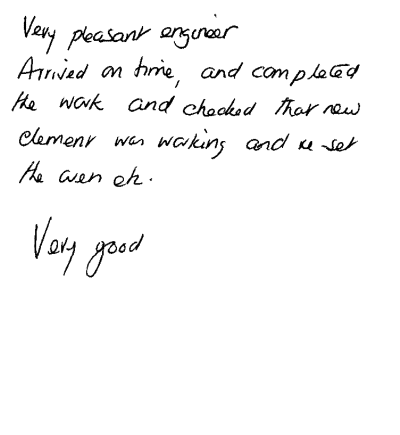 Very pleasant engineer
Arrived on time, and completed
the work and checked that new
element was working and re-set
the oven etc.
Very good